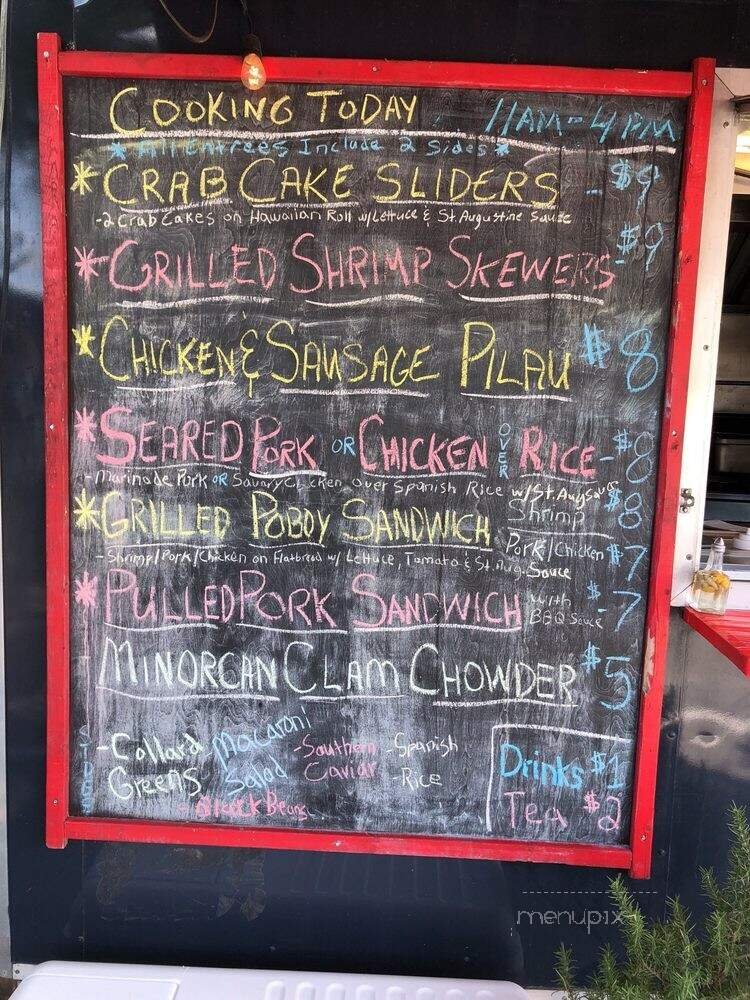 Cooking Today 11AM-4PM
*All Entrees Include 2 Sides*
*Crab Cake Sliders - $9
-2 Crab Cakes on Hawaiian Roll w/Lettuce & St. Augustine Sauce
*Grilled Shrimp Skewers - $9
*Chicken & Sausage Pilau $8
*Seared Pork or Chicken over Rice - $8
-Marinade Pork or Savory Chicken over Spanish Rice w/ St. Aug Sauce
*Grilled Poboy Sandwich Shrimp $8
Pork/Chicken $7
-Shrimp/Pork/Chicken on Flatbread w/ Lettuce, Tomato & St. Aug. Sauce
*Pulled Pork Sandwich with BBQ Sauce $-7
Minorcan Clam Chowder $5
Sides
-Collard Greens
Macaroni Salad
-Southern Caviar
-Spanish
-Rice
Beans
Drinks $1
Tea $2
menupix